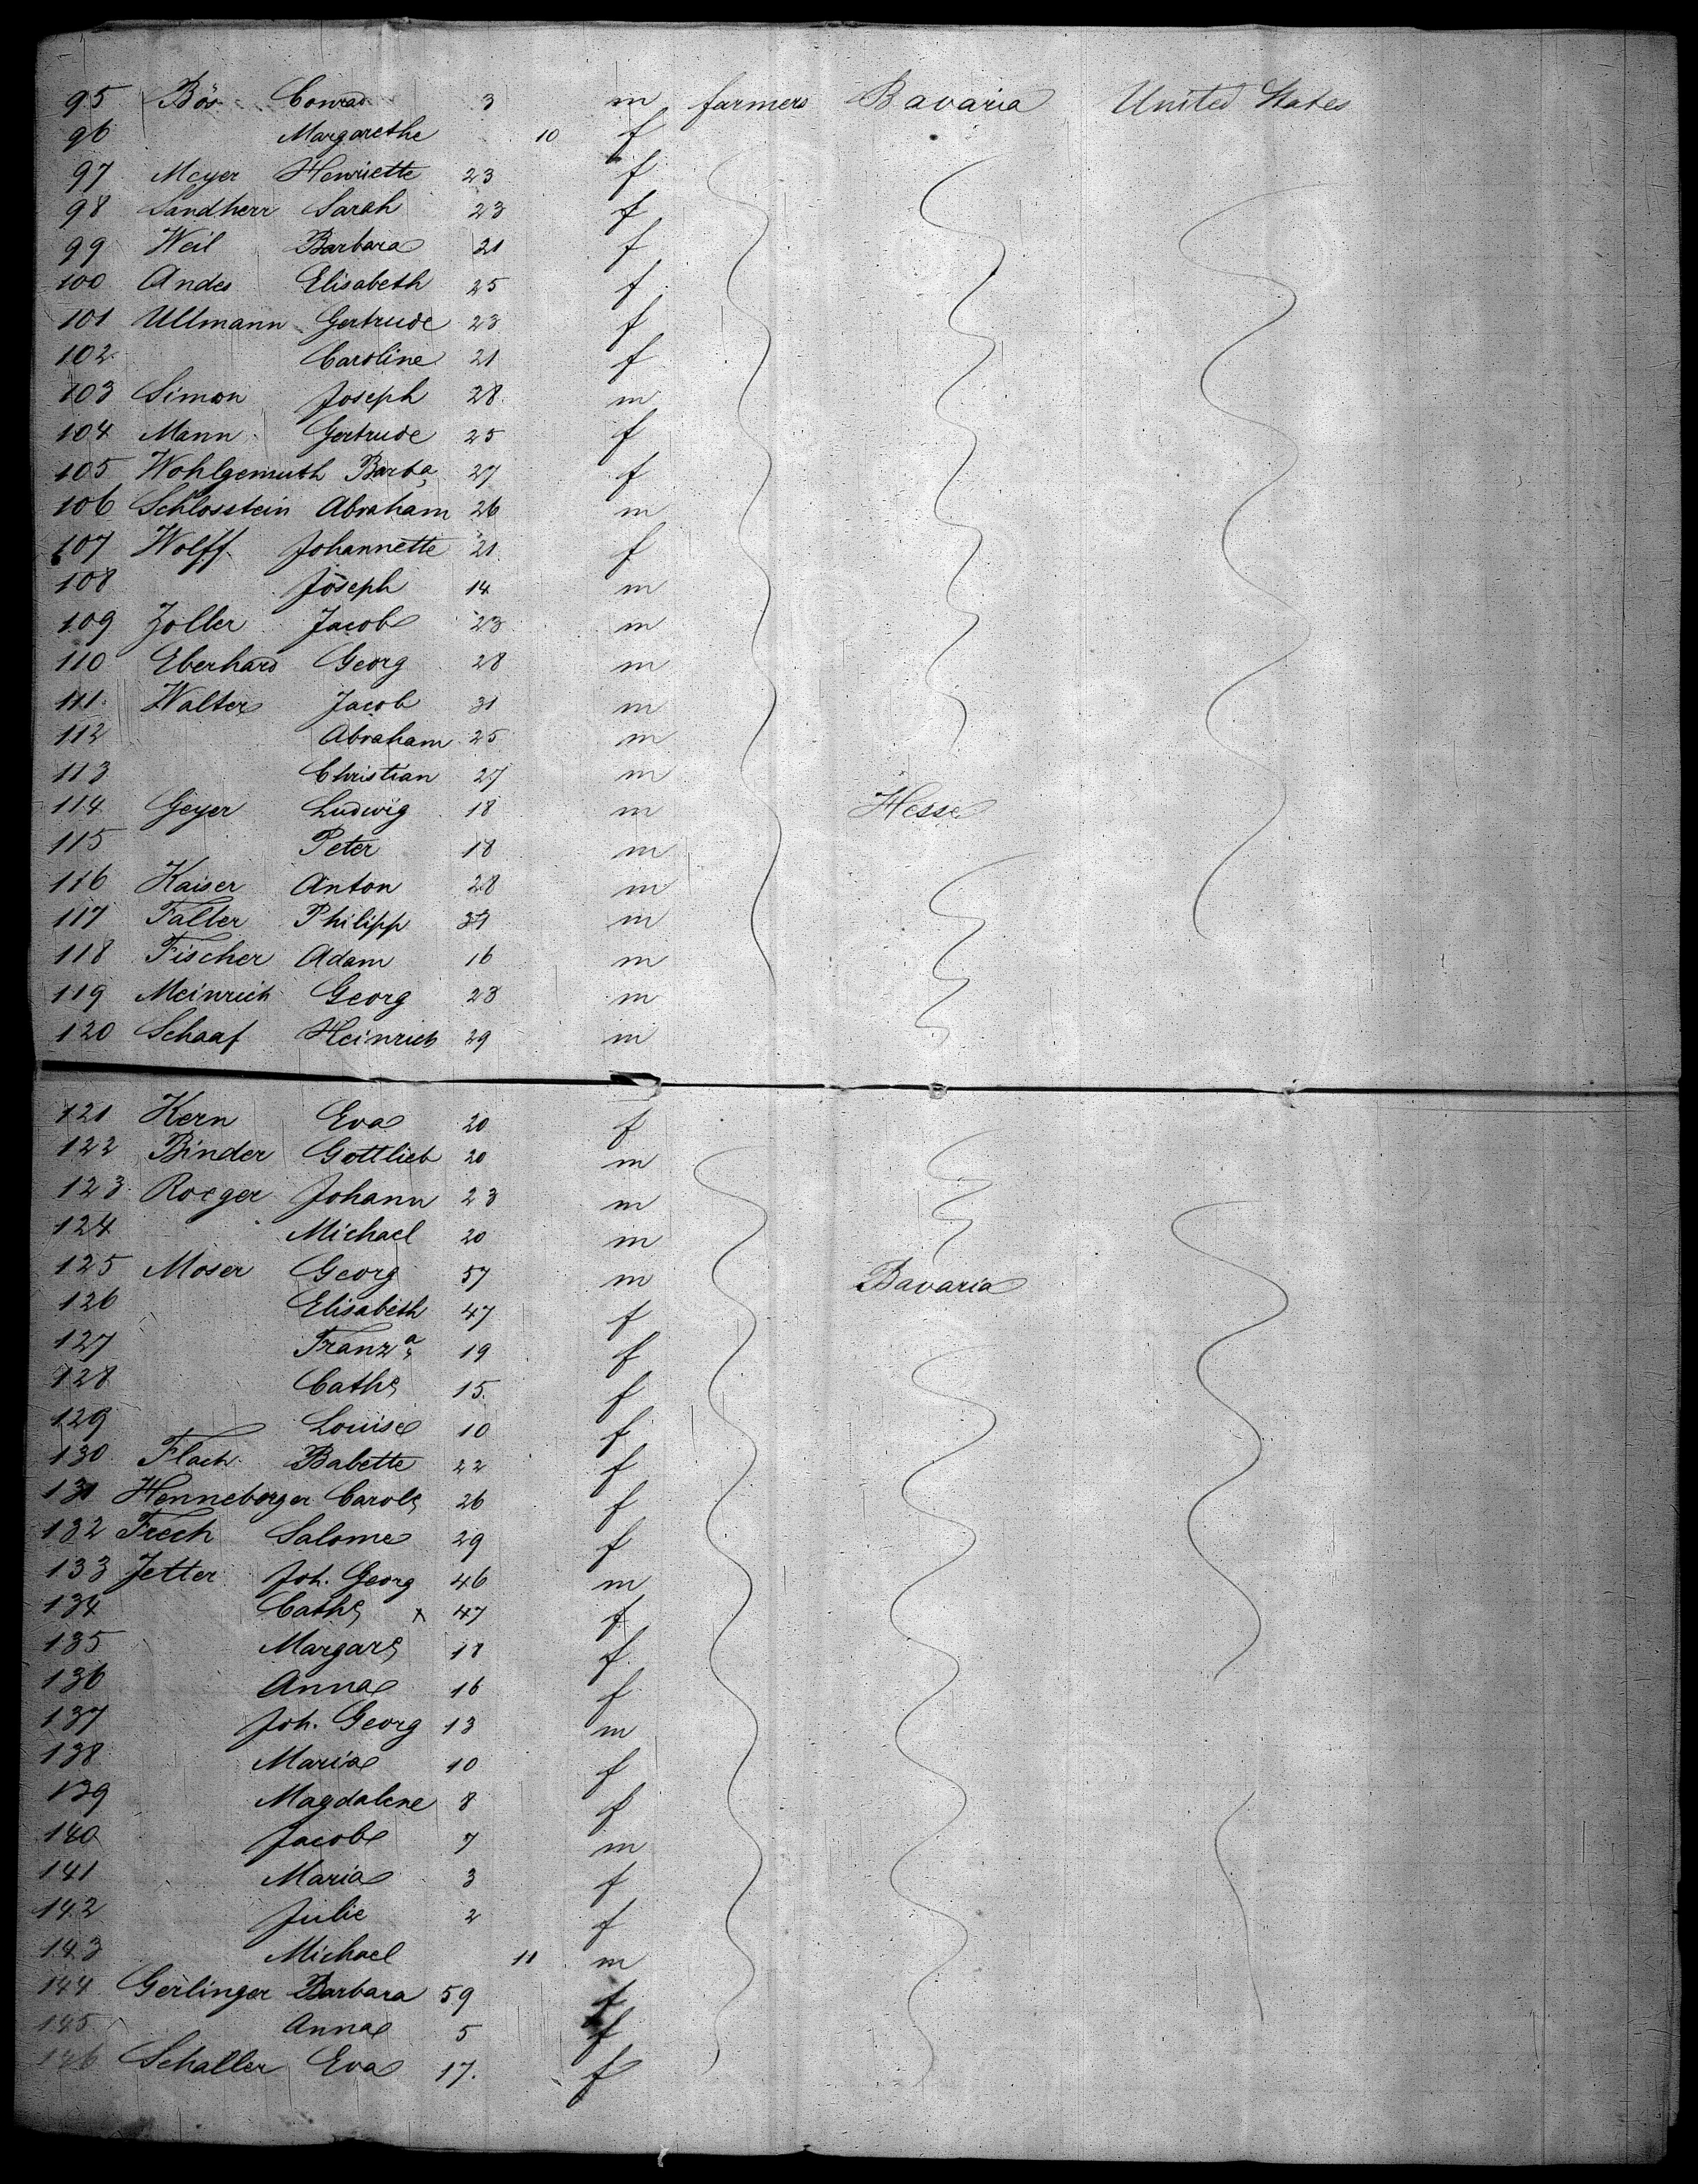 95 Bös Conrad 3 m farmers Bavaria United States
96 Margarethe 10 f
97 Meyer Henriette 23 f
98 Sandherr Sarah 23 f
99 Weil Barbara 21 f
100 Andes Elisabeth 25 f
101 Ullmann Gertrude 23 f
102 Caroline 21 f
103 Simon Joseph 28 m
104 Mann Gertrude 25 f
105 Wohlgemuth Barba 27 f
106 Schlosstein Abraham 26 m
107 Wolff Johannette 21 f
108 Joseph 14 m
109 Zoller Jacob 23 m
110 Eberhard Georg 28 m
111 Walter Jacob 31 m
112 Abraham 25 m
113 Christian 27 m
114 Geyer Ludwig 18 m Hesse
115 Peter 18 m
116 Kaiser Anton 28 m
117 Falter Philipp m
118 Fischer Adam 16 m
119 Meinrich Georg 28 m
120 Schaaf Heinrich 29 m
121 Kern Eva 20 f
122 Binder Gottlieb 20 m
123 Roeger Johann 23 m
124 Michael 20 m
125 Moser Georg 57 m Bavaria
126 Elisabeth 47 f
127 Franza 19 f
128 Cathe 15 f
129 Louise 10 f
130 Flach Babette 22 f
131 Henneberger Carole 26 f
132 Frech Salome 29 f
133 Jetter Joh. Georg 46 m
134 Cathe x 47 f
135 Margare 18 f
136 Anna 16 f
137 Joh. Georg 13 m
138 Maria 10 f
139 Magdalene 8 f
140 Jacob 7 m
141 Maria 3 f
142 Julie 2 f
143 Michael 11 m
144 Gerlinger Barbara 59 f
145 Anna 5 f
146 Schaller Eva 17. f